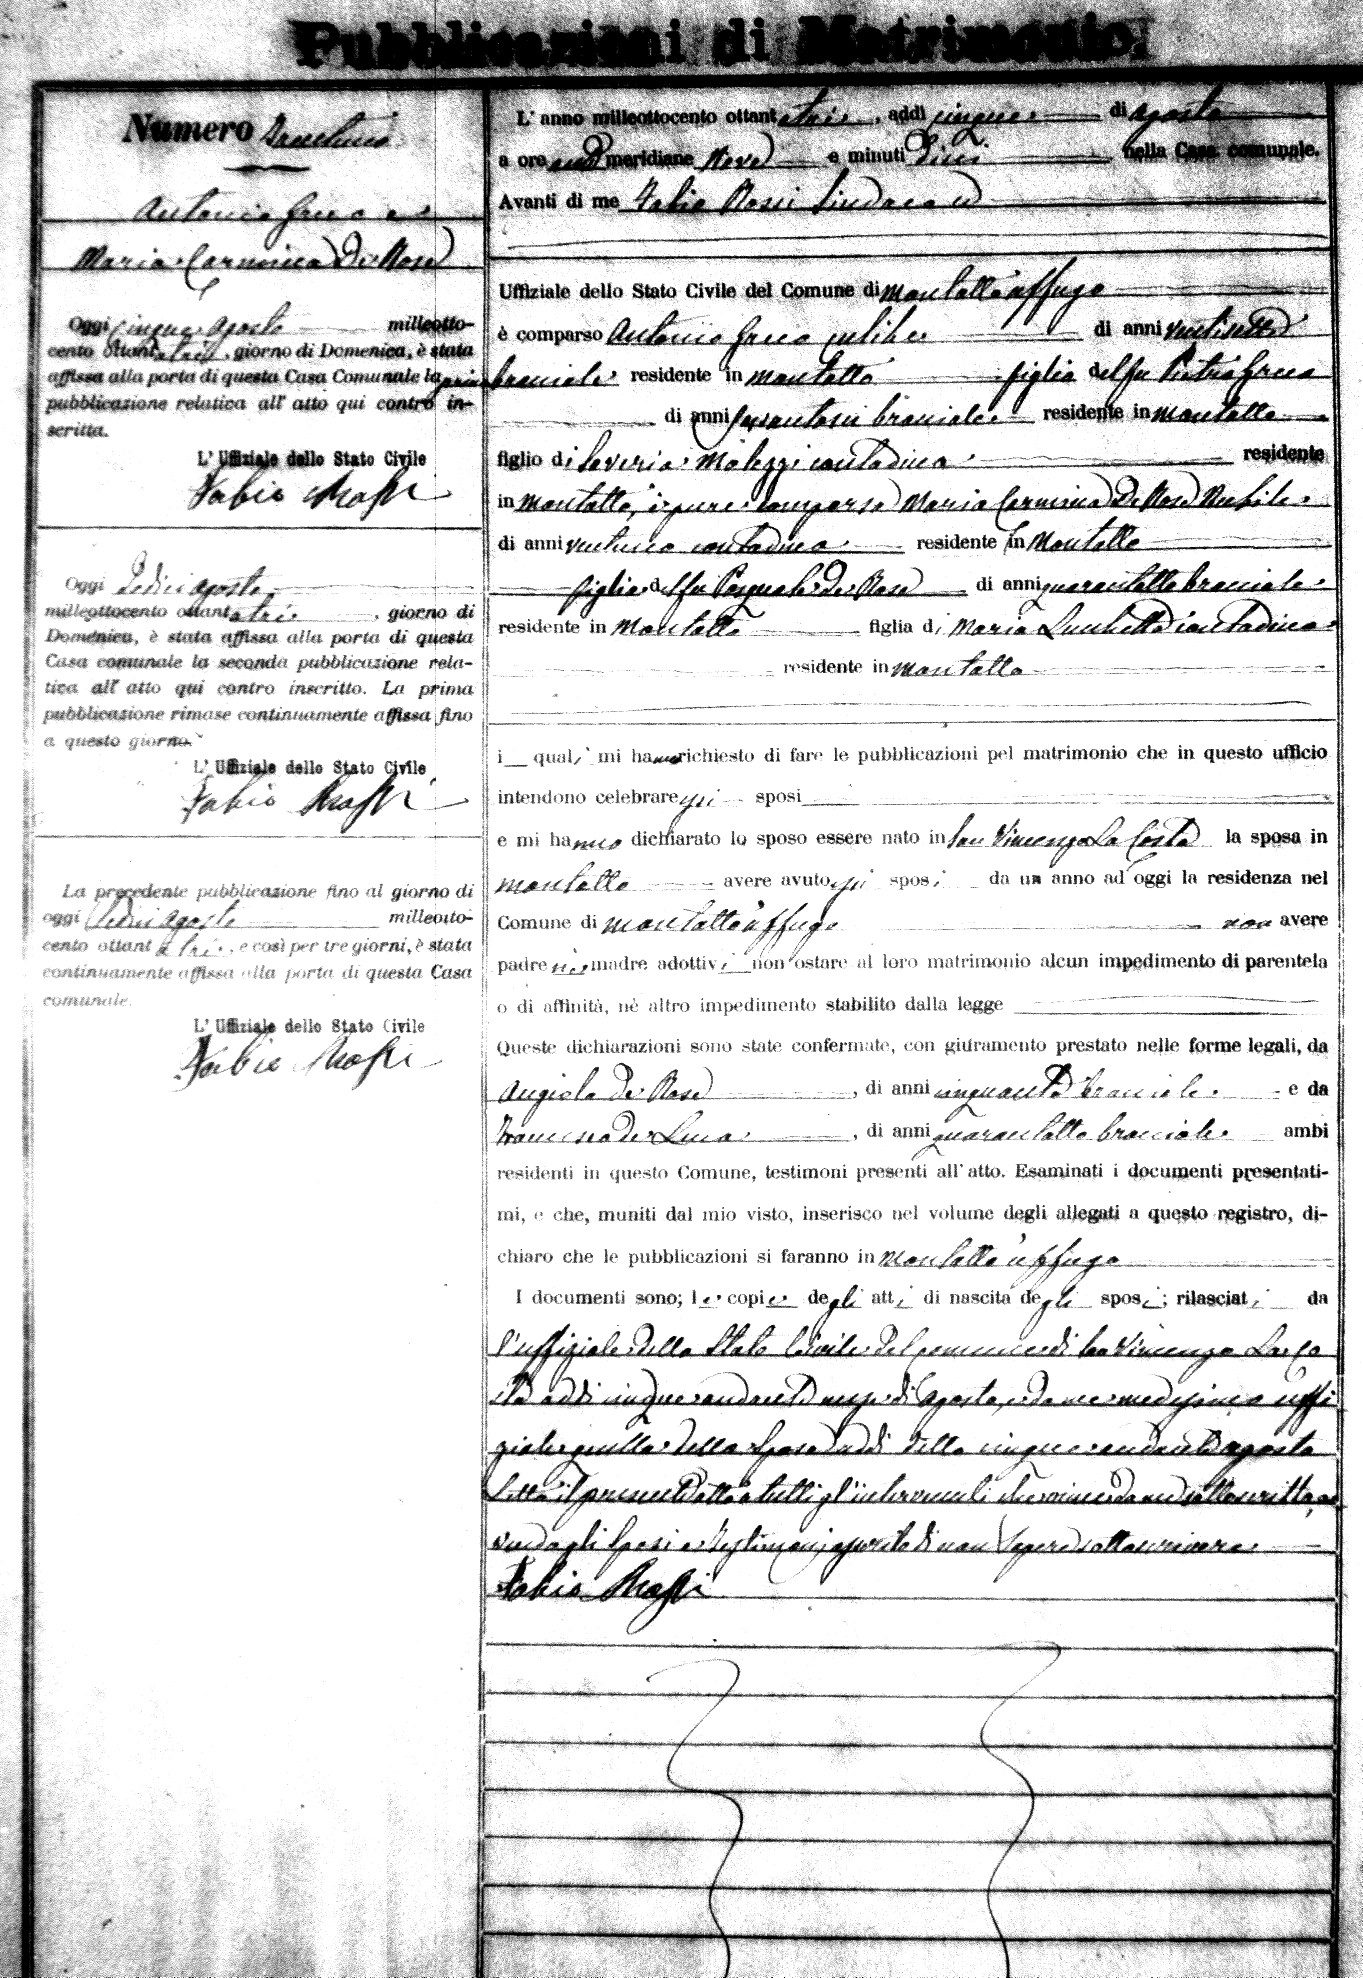 Pubblicazioni di Matrimonio.
Numero
Antonio Greco e
Maria Carmina De Rose
Oggi cinque Agosto milleotto-
cento ottantatrè, giorno di Domenica, è stata
affissa alla porta di questa Casa Comunale la prima
pubblicazione relativa all' atto qui contro in-
scritta.
L' Uffiziale dello Stato Civile
Fabio Rossi
Oggi dodici agosto
milleottocento ottantatrè, giorno di
Domenica, è stata affissa alla porta di questa
Casa comunale la seconda pubblicazione rela-
tiva all' atto qui contro inscritto. La prima
pubblicazione rimase continuamente affissa fino
a questo giorno.
L' Uffiziale dello Stato Civile
Fabio Rossi
La precedente pubblicazione fino al giorno di
oggi agosto milleotto-
cento ottantatrè, e così per tre giorni, è stata
continuamente affissa alla porta di questa Casa
comunale.
L' Uffiziale dello Stato Civile
Fabio Rossi
L' anno milleottocento ottantatrè, addi cinque di agosto
a ore anti meridiane Nove e minuti dieci nella Casa comunale.
Avanti di me Fabio Rossi Sindaco ed
Uffiziale dello Stato Civile del Comune di Montalto Uffugo
è comparso Antonio Greco celibe di anni ventisette
bracciale residente in Montalto figlio del fu Pietro Greco
di anni bracciale residente in Montalto
figlio di Saveria Malizzi contadina residente
in Montalto, è pure comparsa Maria Carmina De Rose Nubile
di anni ventuno contadina residente in Montalto
figlia del fu Pasquale De Rose di anni quarantotto bracciale
residente in Montalto figlia di Maria Luchetta contadina
residente in Montalto
i quali mi hanno richiesto di fare le pubblicazioni pel matrimonio che in questo ufficio
intendono celebrare essi sposi
e mi hanno dichiarato lo sposo essere nato in San Vincenzo La Costa la sposa in
Montalto avere avuto essi sposi da un anno ad oggi la residenza nel
Comune di Montalto Uffugo non avere
padre nè madre adottivi non ostare al loro matrimonio alcun impedimento di parentela
o di affinità, nè altro impedimento stabilito dalla legge
Queste dichiarazioni sono state confermate, con giuramento prestato nelle forme legali, da
Angiolo De Rose, di anni cinquanta bracciale e da
Francesco De Luca, di anni quarantotto bracciale ambi
residenti in questo Comune, testimoni presenti all' atto. Esaminati i documenti presentati-
mi, e che, muniti dal mio visto, inserisco nel volume degli allegati a questo registro, di-
chiaro che le pubblicazioni si faranno in Montalto Uffugo
I documenti sono; le copie degli atti di nascita degli sposi; rilasciati da
l'uffiziale dello Stato Civile del comune di San Vincenzo La Co
sta addi cinque andante mese di Agosto, e da me medesimo uffi
ziale quella della Sposa addi detto cinque andante agosto
Letto il presente atto a tutti gl'intervenuti viene da me sottoscritto a
vendo gli Sposi e Testimoni asserito di non Sapere sottoscrivere
Fabio Rossi